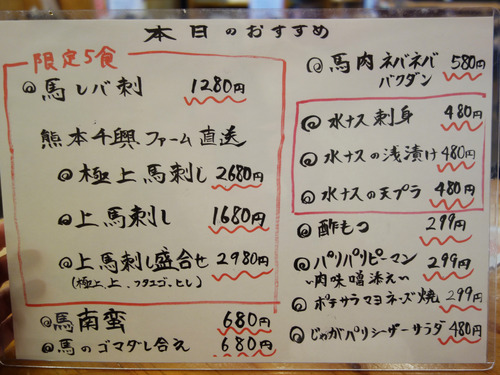 本日のおすすめ
限定5食
馬レバ刺 1280円
熊本千興ファーム直送
極上馬刺し 2680円
上馬刺し 1680円
上馬刺し盛合せ 2980円
(極上、上、フタエゴ、ヒレ)
馬南蛮 680円
馬のゴマダレ合え 680円
馬肉ネバネバ 580円
バクダン
水ナス刺身 480円
水ナスの浅漬け 480円
水ナスの天プラ 480円
酢もつ 299円
パリパリピーマン 299円
~肉味噌添え~
ポテサラマヨネーズ焼 299円
じゃがパリシーザーサラダ 480円